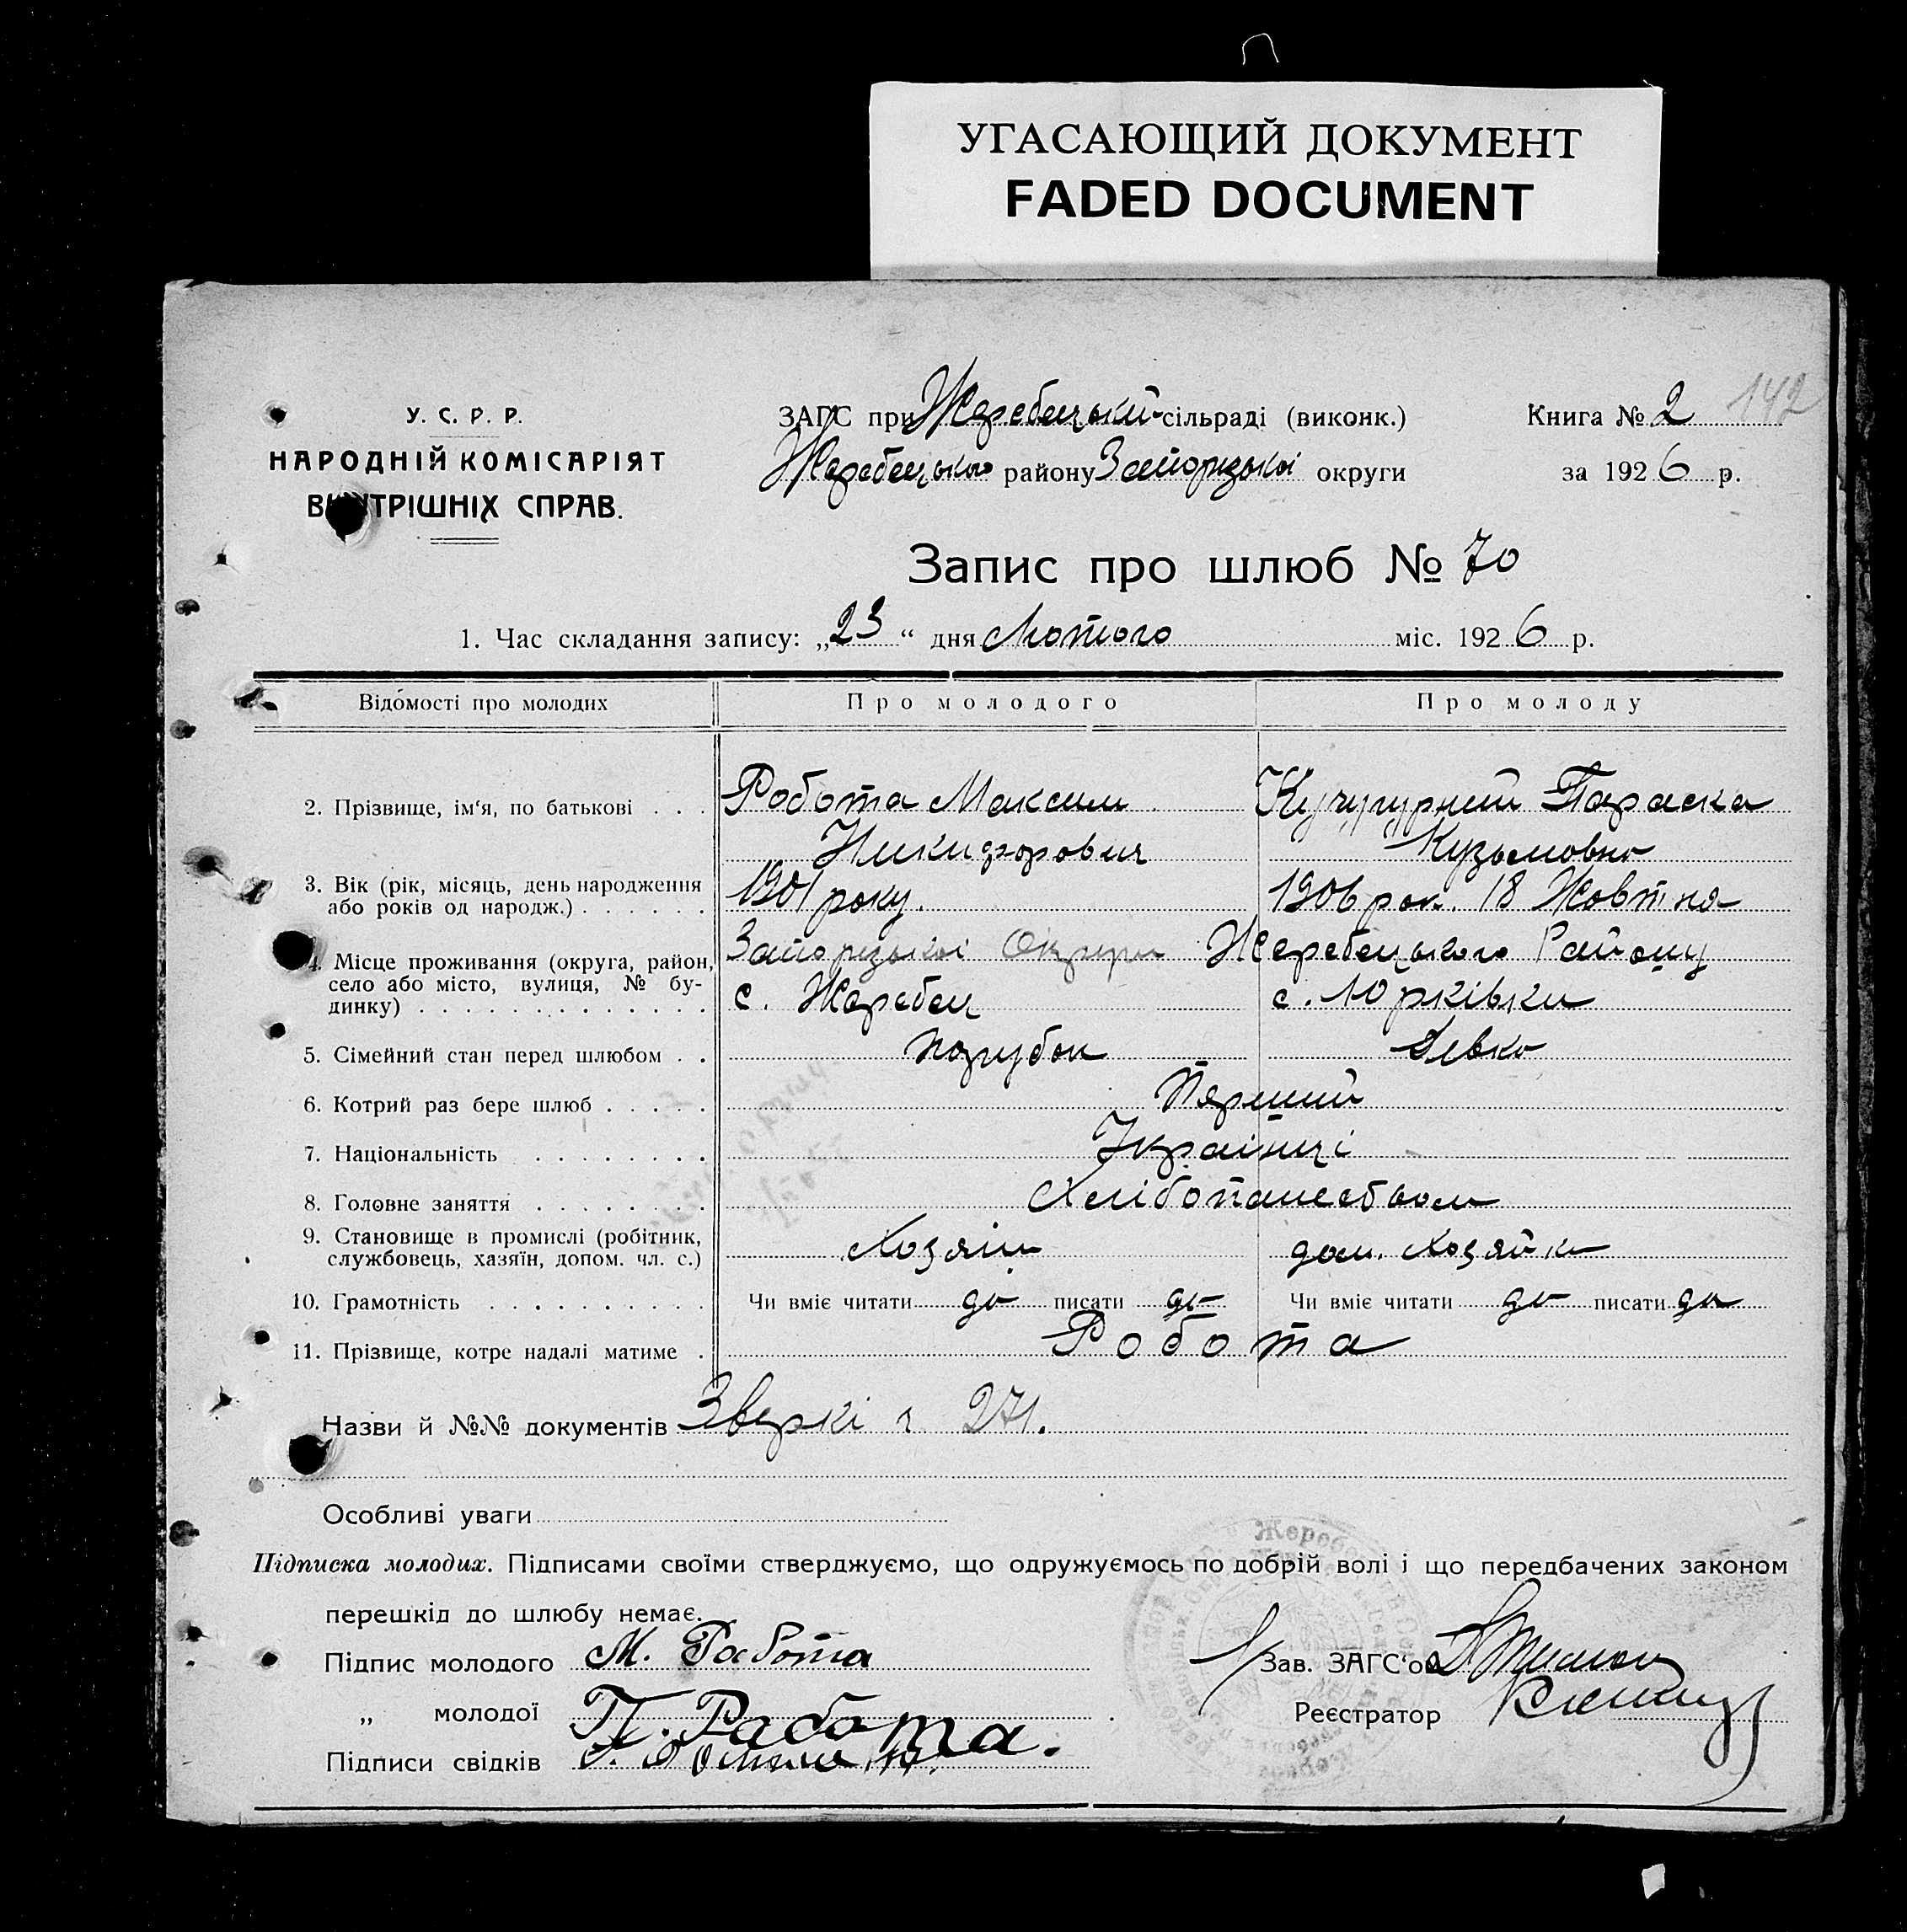 УГАСАЮЩИЙ ДОКУМЕНТ
FADED DOCUMENT
У. С. Р. Р.
НАРОДНІЙ КОМІСАРІЯТ
ВНУТРІШНІХ СПРАВ.
ЗАГС при Жеребецький сільраді (виконк.)
Жеребецького району Запорізькоі округи
Книга № 2 142
за 1926 р.
Запис про шлюб № 70
1. Час складання запису: „23“ дня Лютого міс. 1926 р.
Відомості про молодих Про молодого Про молоду
2. Прізвище, ім'я, по батькові . . . Робота Максим Кучугурний Параска
Никифорович Кузьмовна
3. Вік (рік, місяць, день народження 1901 року. 1906 рок. 18 Жовтня
або років од народж.) . . . . . .
4. Місце проживання (округа, район, Запорізькоі Округи Жеребецького Району
село або місто, вулиця, № бу- с. Жеребец с. Юрківки
динку) . . . . . . . . . . . . .
5. Сімейний стан перед шлюбом . . парубок Девка
6. Котрий раз бере шлюб . . . . . Перший
7. Національність . . . . . . . . Українці
8. Головне заняття . . . . . . . . Хлібопашеством
9. Становище в промислі (робітник, Хозяін дом. Хозяйка
службовець, хазяїн, допом. чл. с.)
10. Грамотність . . . . . . . . . . Чи вміє читати да писати да Чи вміє читати да писати да
11. Прізвище, котре надалі матиме . Робота
Назви й №№ документів 271.
Особливі уваги
Підписка молодих. Підписами своїми стверджуємо, що одружуємось по добрій волі і що передбачених законом
перешкід до шлюбу немає.
Підпис молодого М. Работа
Зав. ЗАГС'ом
„ молодої П. Работа.
Реєстратор
Підписи свідків